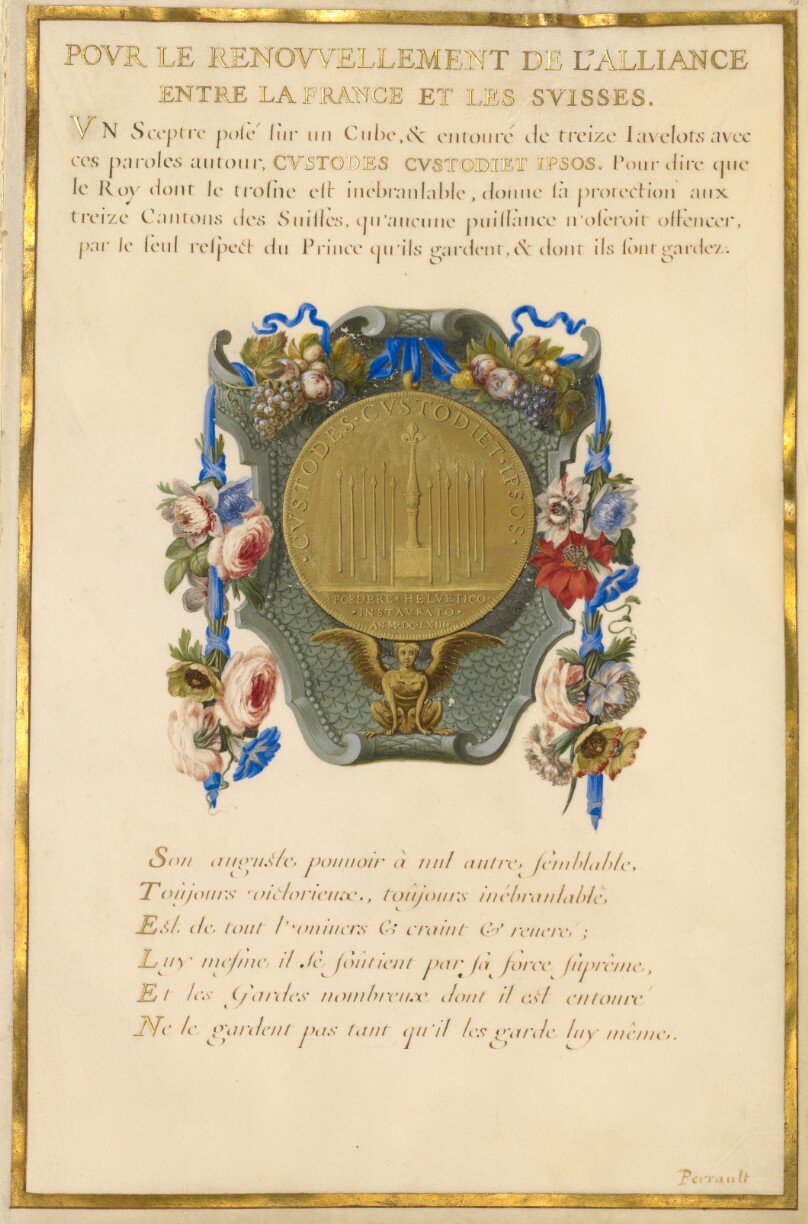 POVR LE RENOVVELLEMENT DE L'ALLIANCE
ENTRE LA FRANCE ET LES SVISSES.
VN Sceptre posé sur un Cube, & entouré de treize Iavelots avec
ces paroles autour, CVSTODES CVSTODIET IPSOS. Pour dire que
le Roy dont le trosne est inébranlable, donne sa protection aux
treize Cantons des Suisses, qu'aucune puissance n'oseroit offencer,
par le seul respect du Prince qu'ils gardent, & dont ils sont gardez.
·CVSTODES·CVSTODIET·IPSOS·
·FOEDERE·HELVETICO·
·INSTAVRATO·
·AN·M·DC·LXIII·
Son auguste pouuoir à nul autre semblable,
Toûjours victorieux, toûjours inébranlable,
Est de tout l'vniuers & craint & reueré;
Luy mesme il se soûtient par sa force suprême,
Et les Gardes nombreux dont il est entouré
Ne le gardent pas tant qu'il les garde luy même.
Perrault